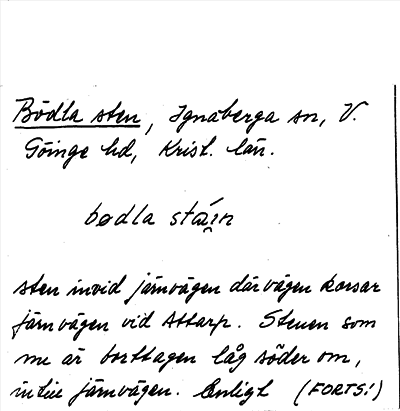 Bödla sten, Ignaberga sn, V.
Göinge hd, Krist. län.
bødla stæi̯n
sten invid järnvägen där vägen korsar
järnvägen vid Attarp. Stenen som
nu är borttagen låg söder om,
intill järnvägen. Enligt (FORTS!)